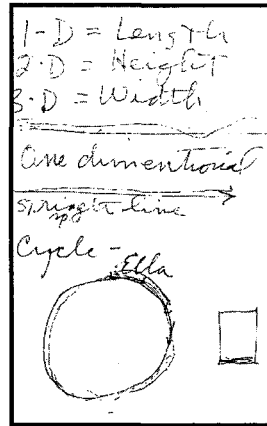 1-D = Length
2-D = Height
3-D = Width
One dimentional
line
Cycle -
Ella